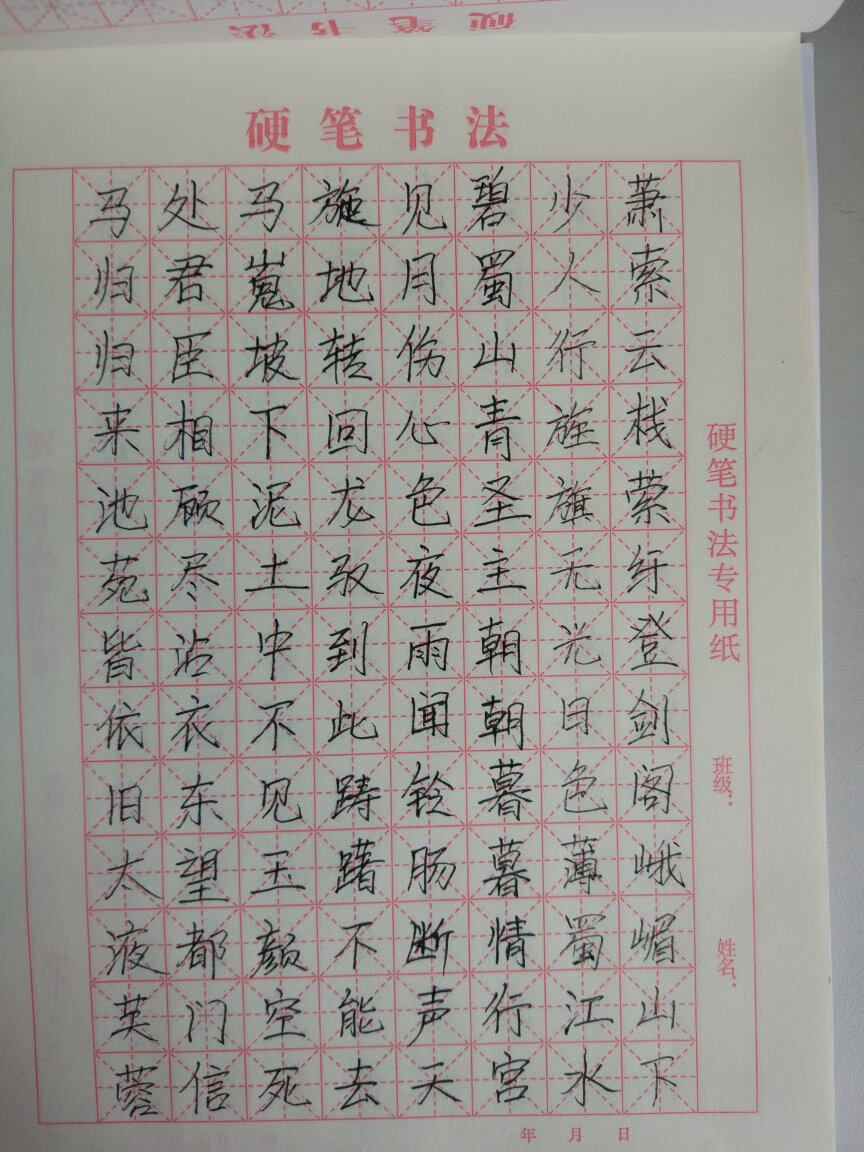 硬笔书法
硬笔书法
萧索云栈萦纡登剑阁峨嵋山下
少人行旌旗无光日色薄蜀江水
碧蜀山青圣主朝朝暮暮情行宫
见月伤心色夜雨闻铃肠断声天
旋地转回龙驭到此踌躇不能去
马嵬坡下泥土中不见玉颜空死
处君臣相顾尽沾衣东望都门信
马归归来池苑皆依旧太液芙蓉
硬笔书法专用纸
班级：
姓名：
年 月 日